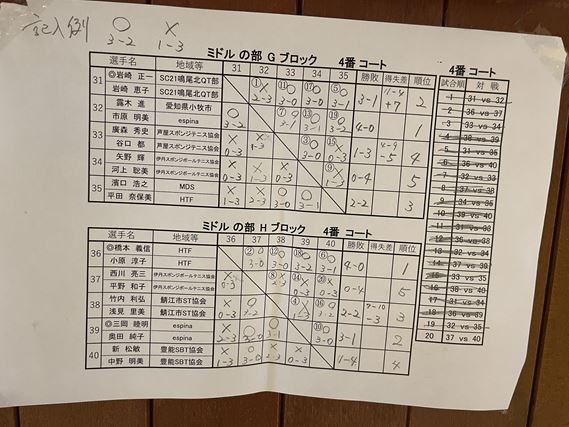 記入例 ○ ×
3-2 1-3
ミドル の部 G ブロック 4番 コート
選手名 地域等 31 32 33 34 35 勝敗 得失差 順位
31 ◎岩崎 正一 SC21鳴尾北QT部
岩崎 恵子 SC21鳴尾北QT部 2-3 3-0 3-0 3-1 3-1 +7 2
32 露木 進 愛知県小牧市
市原 明美 espina 3-2 3-1 3-0 3-2 4-0 1
33 廣森 秀史 芦屋スポンジテニス協会
谷口 都 芦屋スポンジテニス協会 0-3 1-3 3-0 0-3 1-3 4-9 -5 4
34 矢野 輝 伊丹スポンジボールテニス協会
河上 聡美 伊丹スポンジボールテニス協会 0-3 0-3 0-3 1-3 0-4 5
35 濱口 浩之 MDS × × ○ ○
平田 奈保美 HTF 1-3 2-3 3-0 3-1 2-2 3
ミドル の部 H ブロック 4番 コート
選手名 地域等 36 37 38 39 40 勝敗 得失差 順位
36 ◎橋本 義信 HTF
小原 淳子 HTF 3-0 3-0 3-2 3-1 4-0 1
37 西川 亮三 伊丹スポンジボールテニス協会
平野 和子 伊丹スポンジボールテニス協会 0-3 2-3 0-3 0-3 0-4 5
38 竹内 利弘 鯖江市ST協会
浅見 里美 鯖江市ST協会 0-3 3-2 1-3 3-2 2-2 7-10 -3 3
39 ◎三岡 睦明 espina
奥田 純子 espina 2-3 3-0 3-1 3-0 3-1 2
40 新 松敏 豊能SBT協会 × ○ × ×
中野 明美 豊能SBT協会 1-3 3-0 2-3 0-3 1-4 4
4番 コート
試合順 対 戦
1 31 vs 32
2 36 vs 37
3 33 vs 34
4 38 vs 39
5 31 vs 35
6 36 vs 40
7 32 vs 33
8 37 vs 38
9 34 vs 35
10 39 vs 40
11 31 vs 33
12 36 vs 38
13 32 vs 34
14 37 vs 39
15 33 vs 35
16 38 vs 40
17 31 vs 34
18 36 vs 39
19 32 vs 35
20 37 vs 40